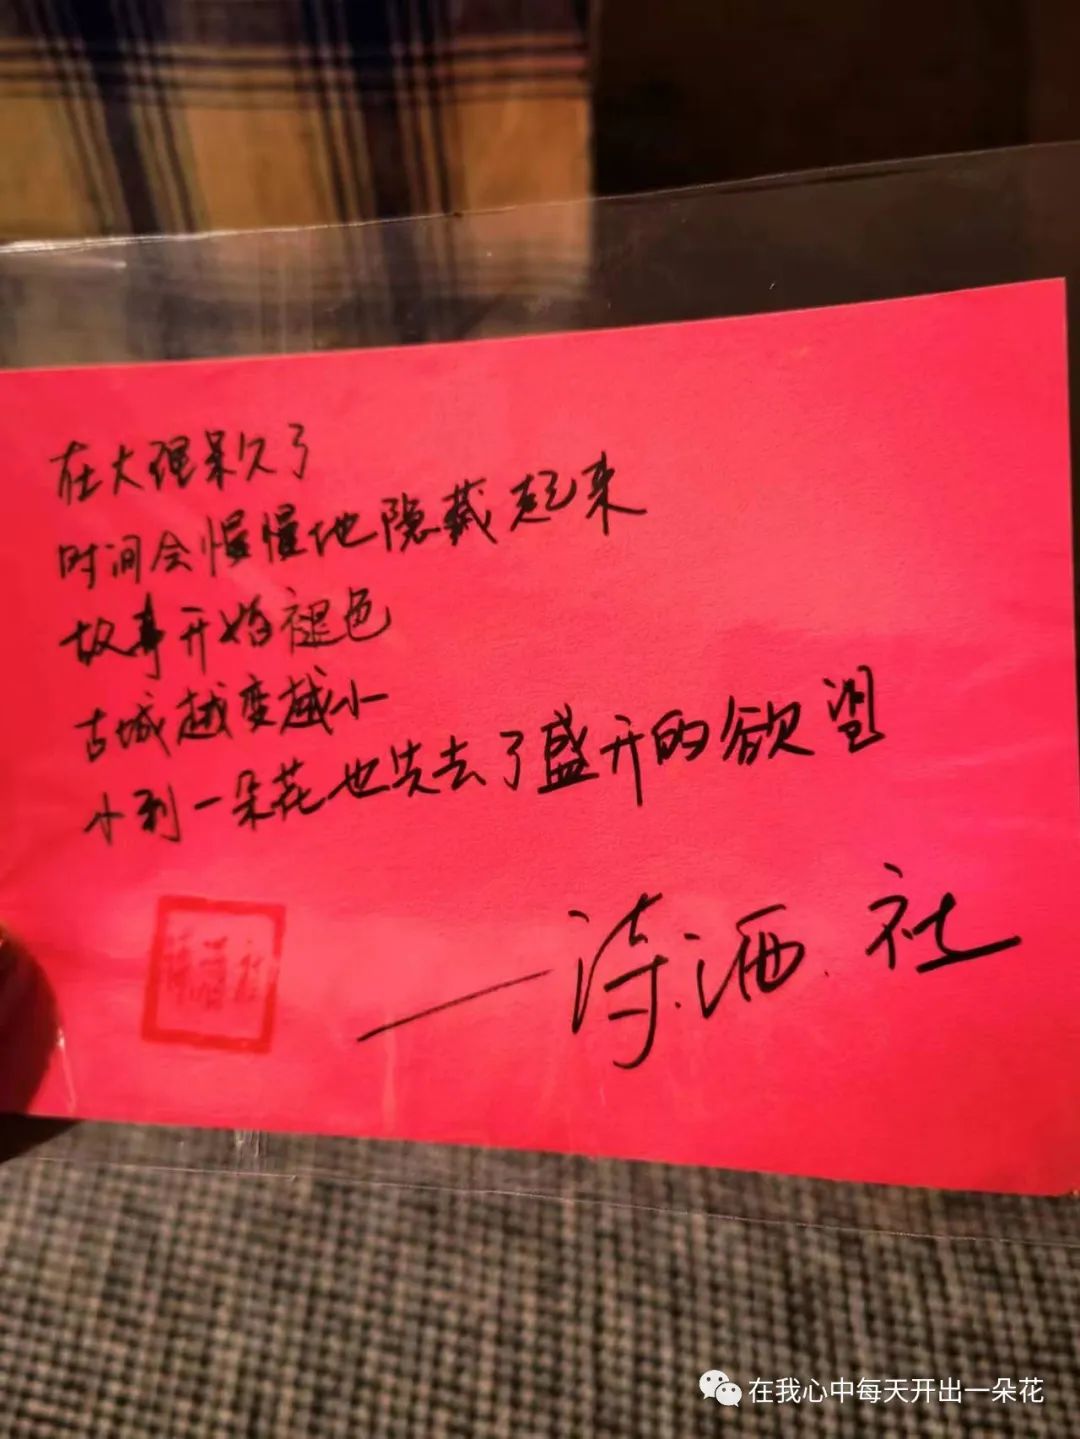 在大理呆久了
时间会慢慢地隐藏起来
故事开始褪色
古城越变越小
小到一朵花也失去了盛开的欲望
——诗.酒.社
在我心中每天开出一朵花